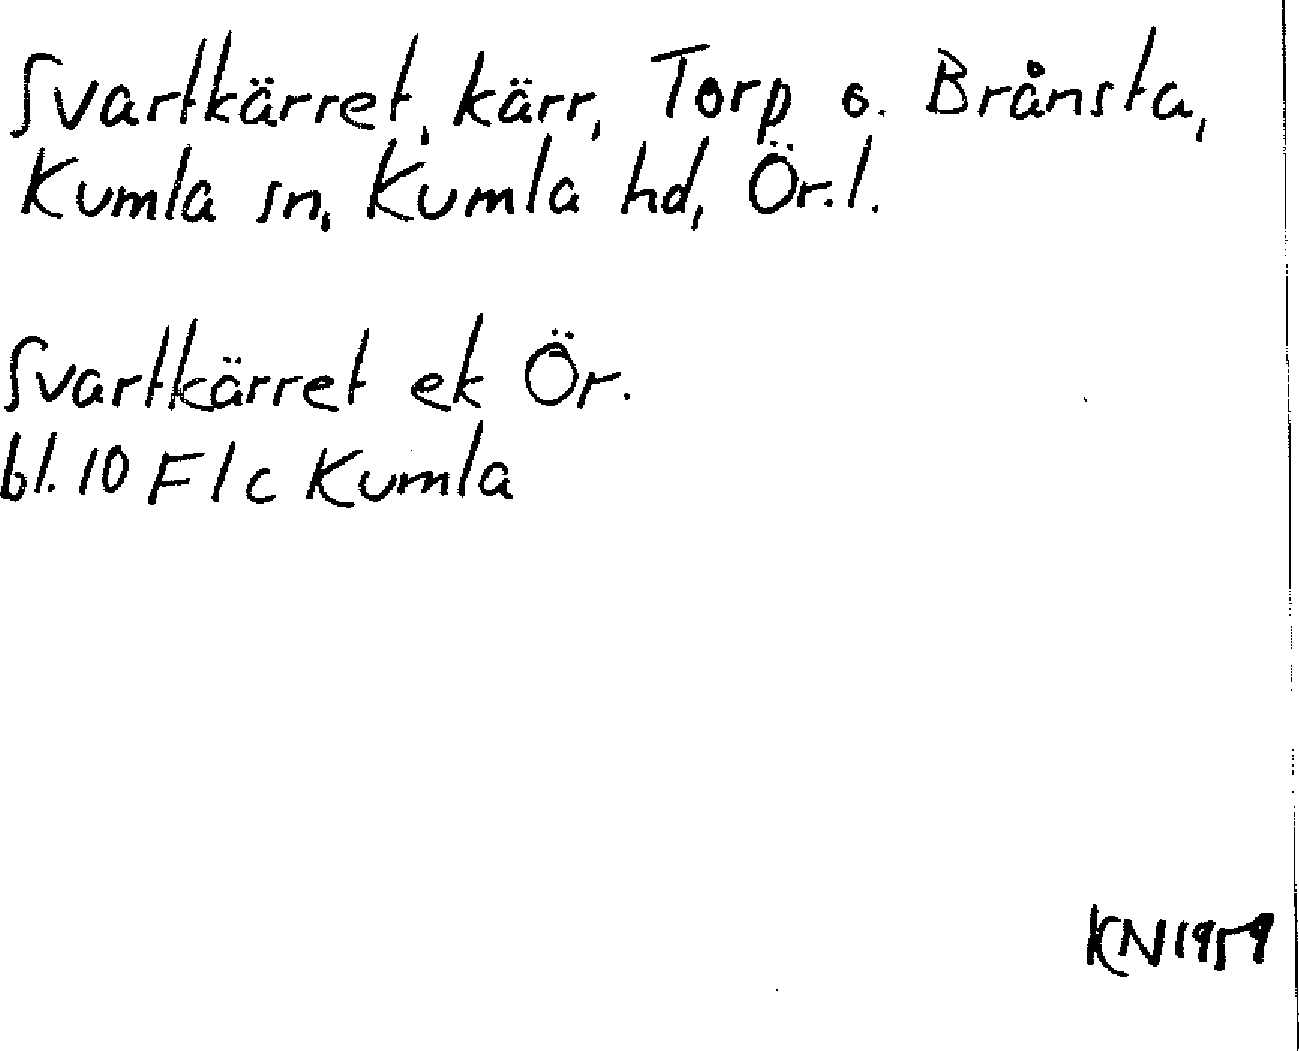 Svartkärret, kärr, Torp o. Brånsta,
Kumla sn, Kumla hd, Ör.l.
Svartkärret ek Ör.
bl. 10 F 1 c Kumla
KN 1959